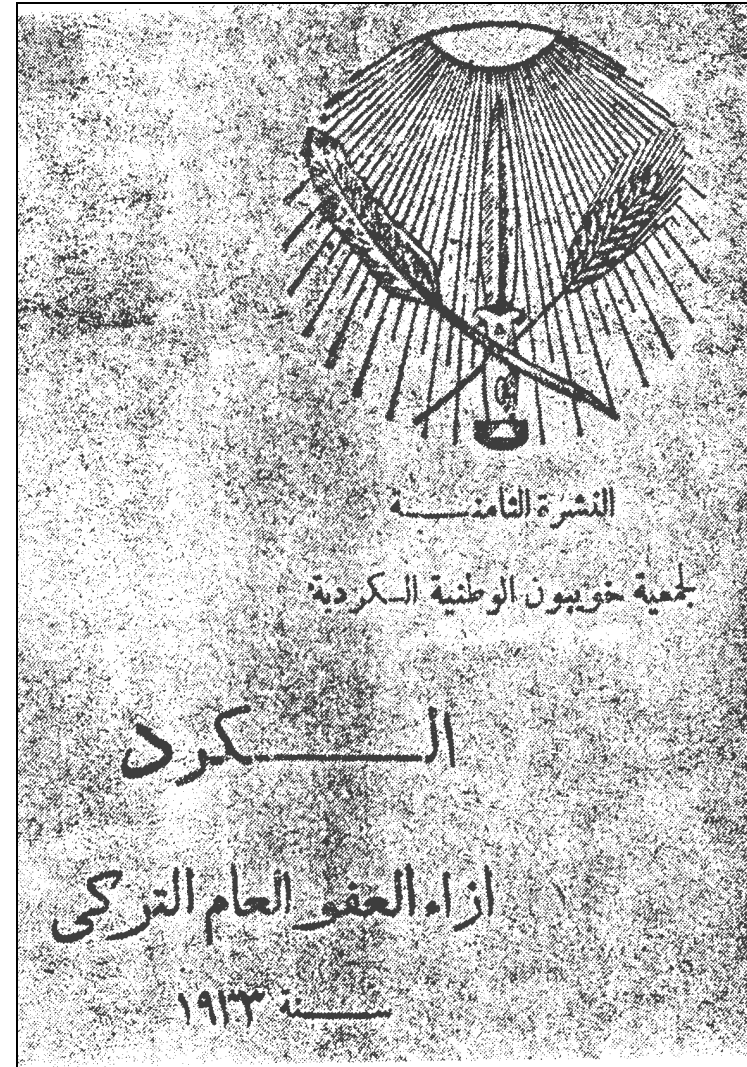 النشرة الثامنة
لجمعية خويبون الوطنية الكردية
الكرد
ازاء العفو العام التركي
سنة ١٩٣٣